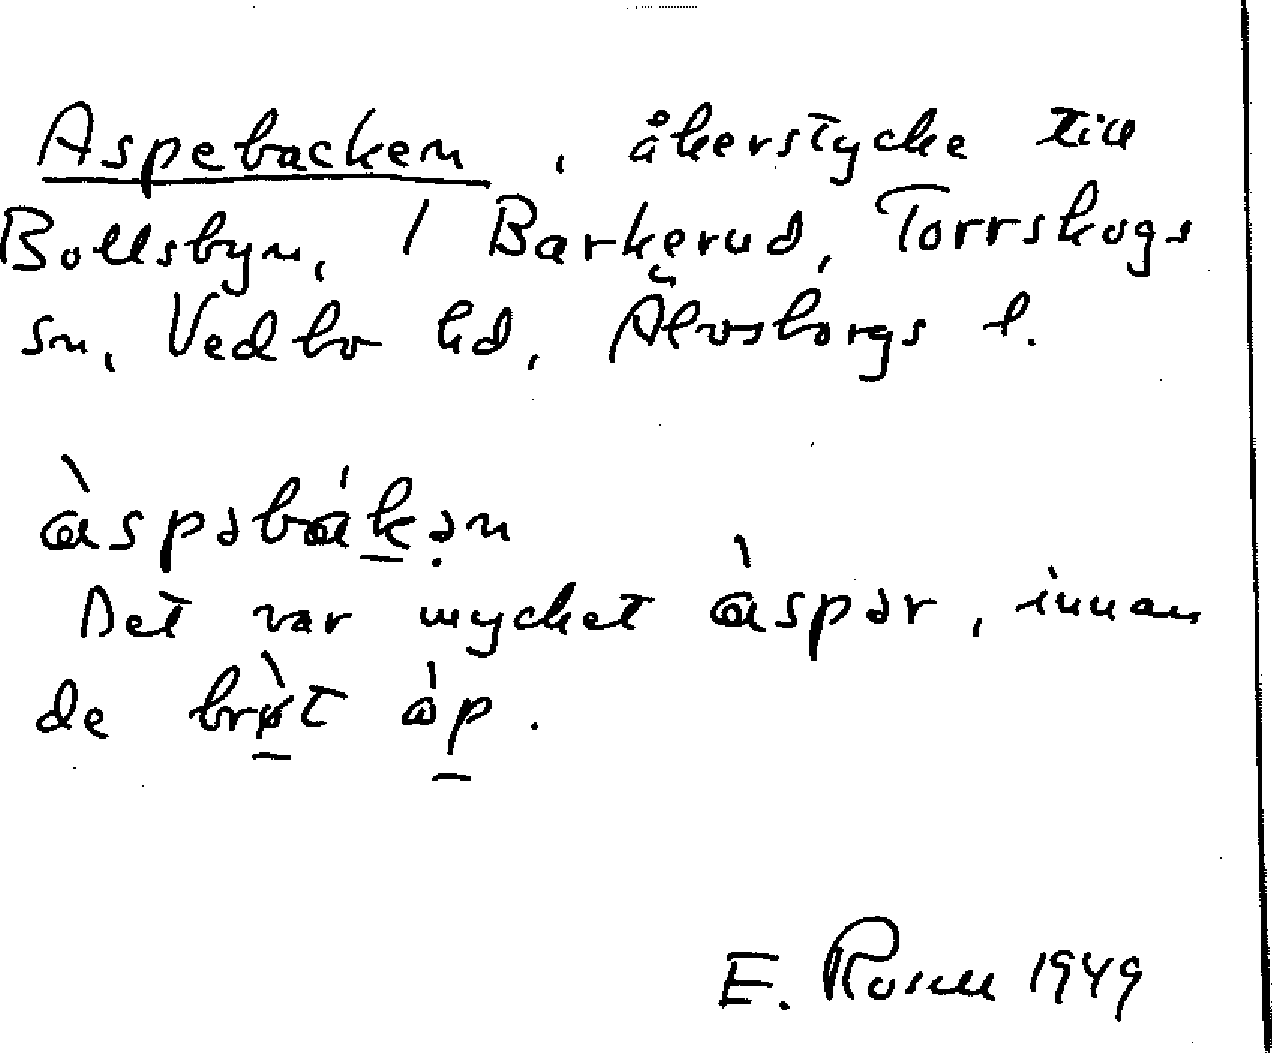 Aspebacken, åkerstycke till
Bollsbyn, 1 Barkerud, Torrskogs
sn, Vedbo hd, Älvsborgs l.
àspəbákən
Det var mycket àspər, innan
de brø̀t óp.
E. Rosell 1949